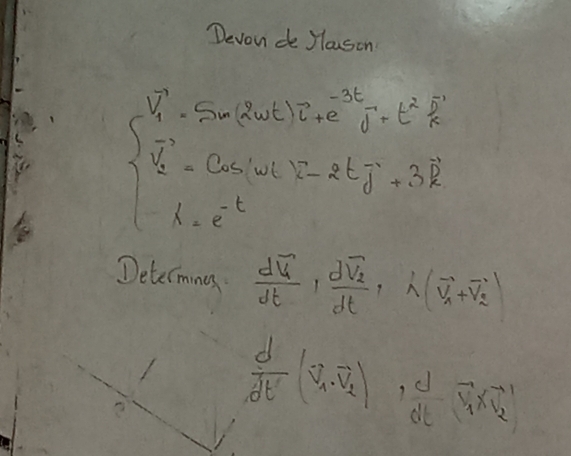 Devoir de Maison
V⃗₁ = Sin(2ωt) i⃗ + e⁻³ᵗ j⃗ + t² k⃗
V⃗₂ = Cos(ωt) i⃗ - 2t j⃗ + 3 k⃗
λ = e⁻ᵗ
Determinez. dV⃗₁/dt , dV⃗₂/dt , λ(V⃗₁ + V⃗₂)
d/dt (V⃗₁ . V⃗₂) , d/dt (V⃗₁ x V⃗₂)